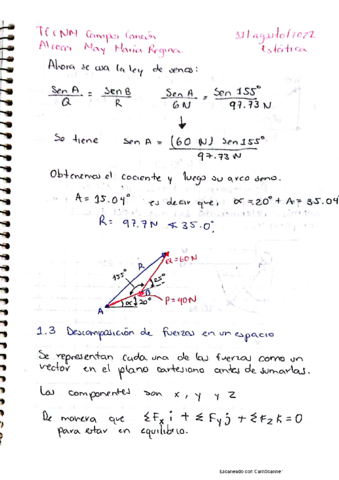 TECNM Campus Cancún 31/agosto/2022
Alcocer May María Regina Estática
Ahora se usa la ley de senos:
Sen A / Q = Sen B / R Sen A / 60 N = Sen 155° / 97.73 N
Se tiene Sen A = (60 N) sen 155° / 97.73 N
Obtenemos el cociente y luego su arco seno.
A = 15.04° es decir que: α = 20° + A = 35.04
R = 97.7 N ∡ 35.0°
Q = 60N
R
155°
25°
B
A
α
20°
P = 40N
1.3 Descomposición de fuerzas en un espacio
Se representan cada una de las fuerzas como un
vector en el plano cartesiano antes de sumarlas.
Las componentes son x, y y z
De manera que ΣFx i + ΣFy j + ΣFz k = 0
para estar en equilibrio.
Escaneado con CamScanner